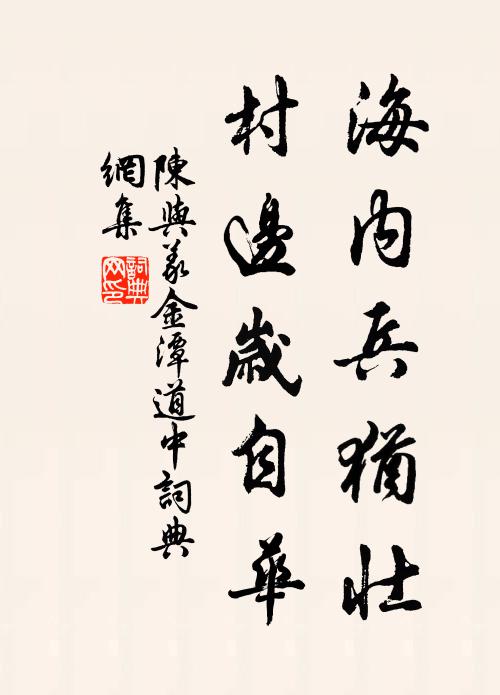 海内兵猶壮
村邊歲自華
陳與義金潭道中詞典
網集
詞典網印